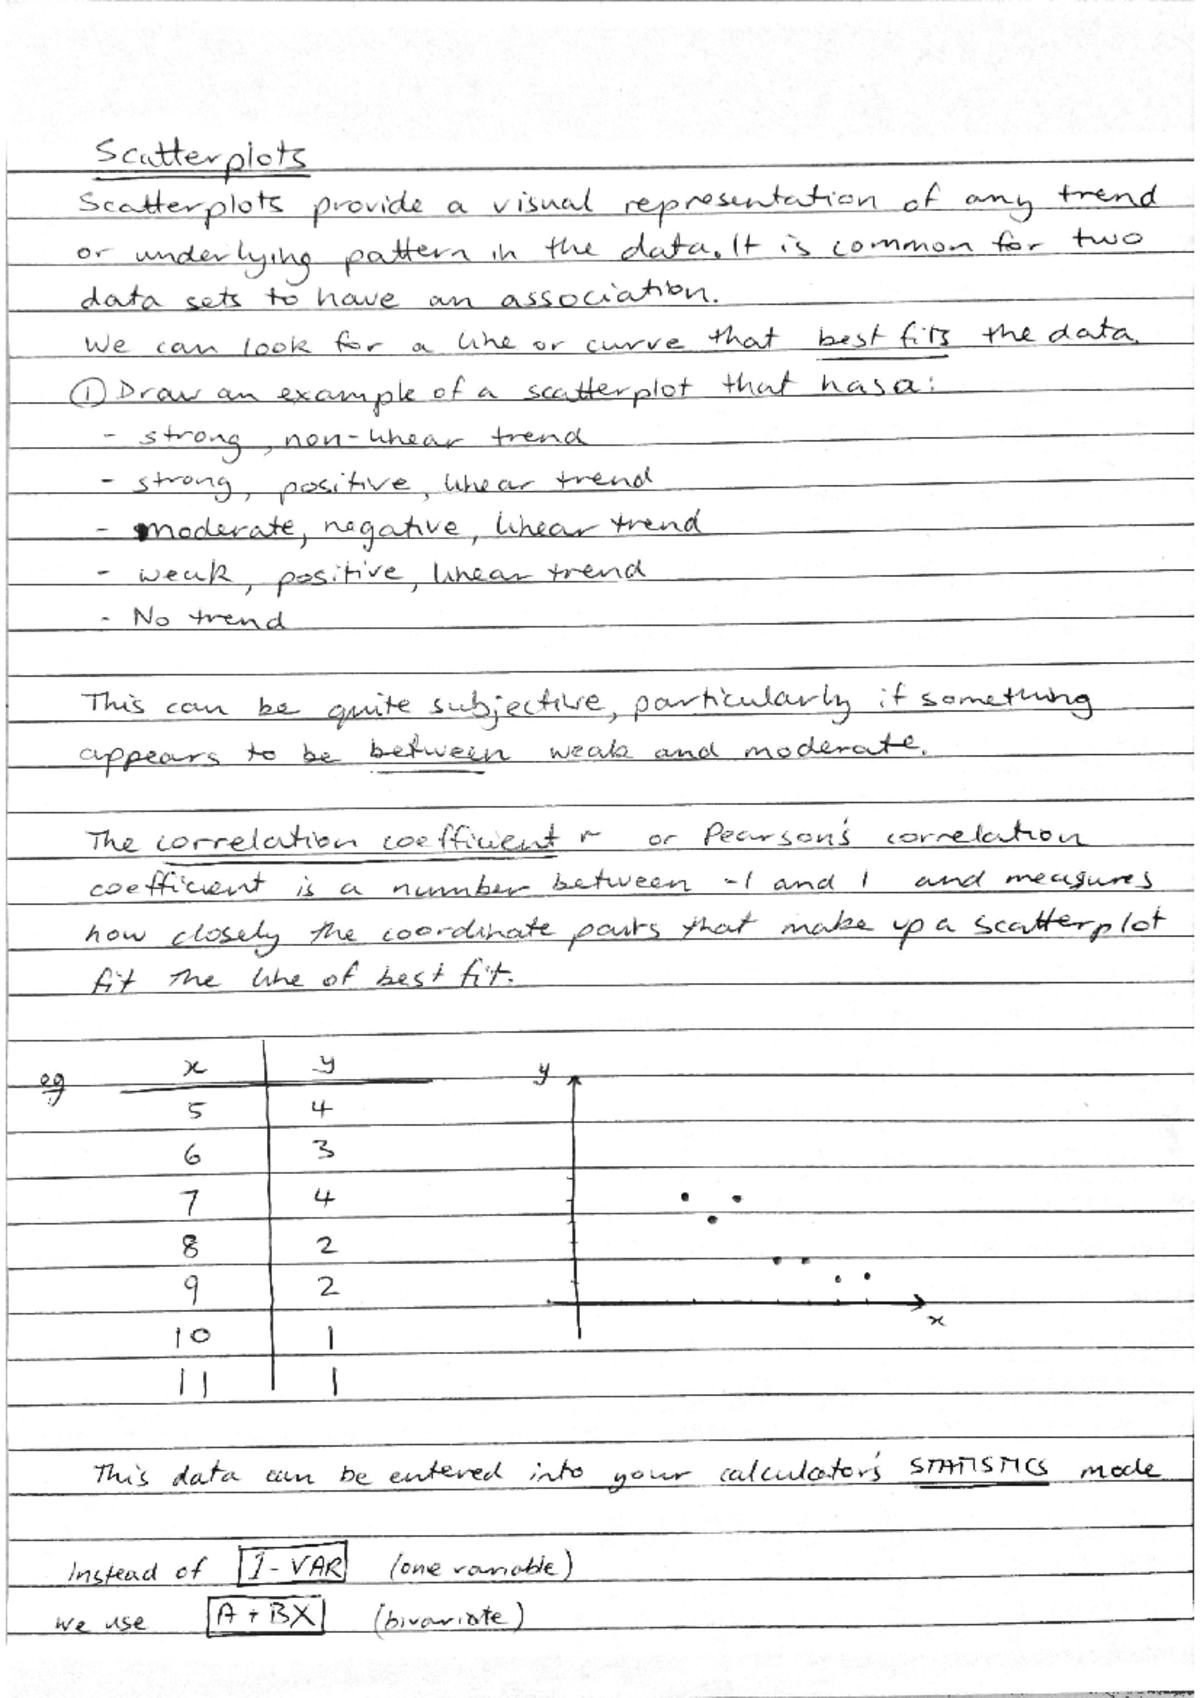 Scatterplots
Scatterplots provide a visual representation of any trend
or underlying pattern in the data. It is common for two
data sets to have an association.
We can look for a line or curve that best fits the data.
① Draw an example of a scatterplot that has a:
- strong, non-linear trend
- strong, positive, linear trend
- moderate, negative, linear trend
- weak, positive, linear trend
- No trend
This can be quite subjective, particularly if something
appears to be between weak and moderate.
The correlation coefficient r or Pearson's correlation
coefficient is a number between -1 and 1 and measures
how closely the coordinate pairs that make up a scatterplot
fit the line of best fit.
eg x y
5 4
6 3
7 4
8 2
9 2
10 1
11 1
y
x
This data can be entered into your calculator's STATISTICS mode
Instead of 1-VAR (one variable)
we use A+BX (bivariate)